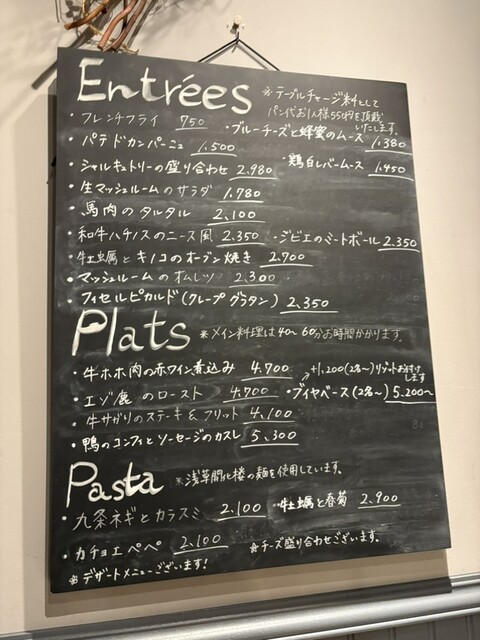 Entrées
※テーブルチャージ料として
パン代お1人様550円を頂戴
いたします。
・フレンチフライ 750
・ブルーチーズと蜂蜜のムース 1,380
・パテドカンパーニュ 1,500
・鶏白レバームース 1,450
・シャルキュトリーの盛り合わせ 2,980
・生マッシュルームのサラダ 1,780
・馬肉のタルタル 2,100
・和牛ハチノスのニース風 2,350
・ジビエのミートボール 2,350
・牡蠣とキノコのオーブン焼き 2,700
・マッシュルームのオムレツ 2,300
・フィセルピカルド(クレープグラタン) 2,350
Plats
※メイン料理は40〜60分お時間かかります。
・牛ホホ肉の赤ワイン煮込み 4,700
+1,200(2名〜)リゾットお付けします
・エゾ鹿のロースト 4,700
・ブイヤベース(2名〜) 5,200〜
・牛サガリのステーキ&フリット 4,100
・鴨のコンフィとソーセージのカスレ 5,300
Pasta
※浅草開化楼の麺を使用しています。
・九条ネギとカラスミ 2,100
・牡蠣と春菊 2,900
・カチョエペペ 2,100
※チーズ盛り合わせございます。
※デザートメニューございます!